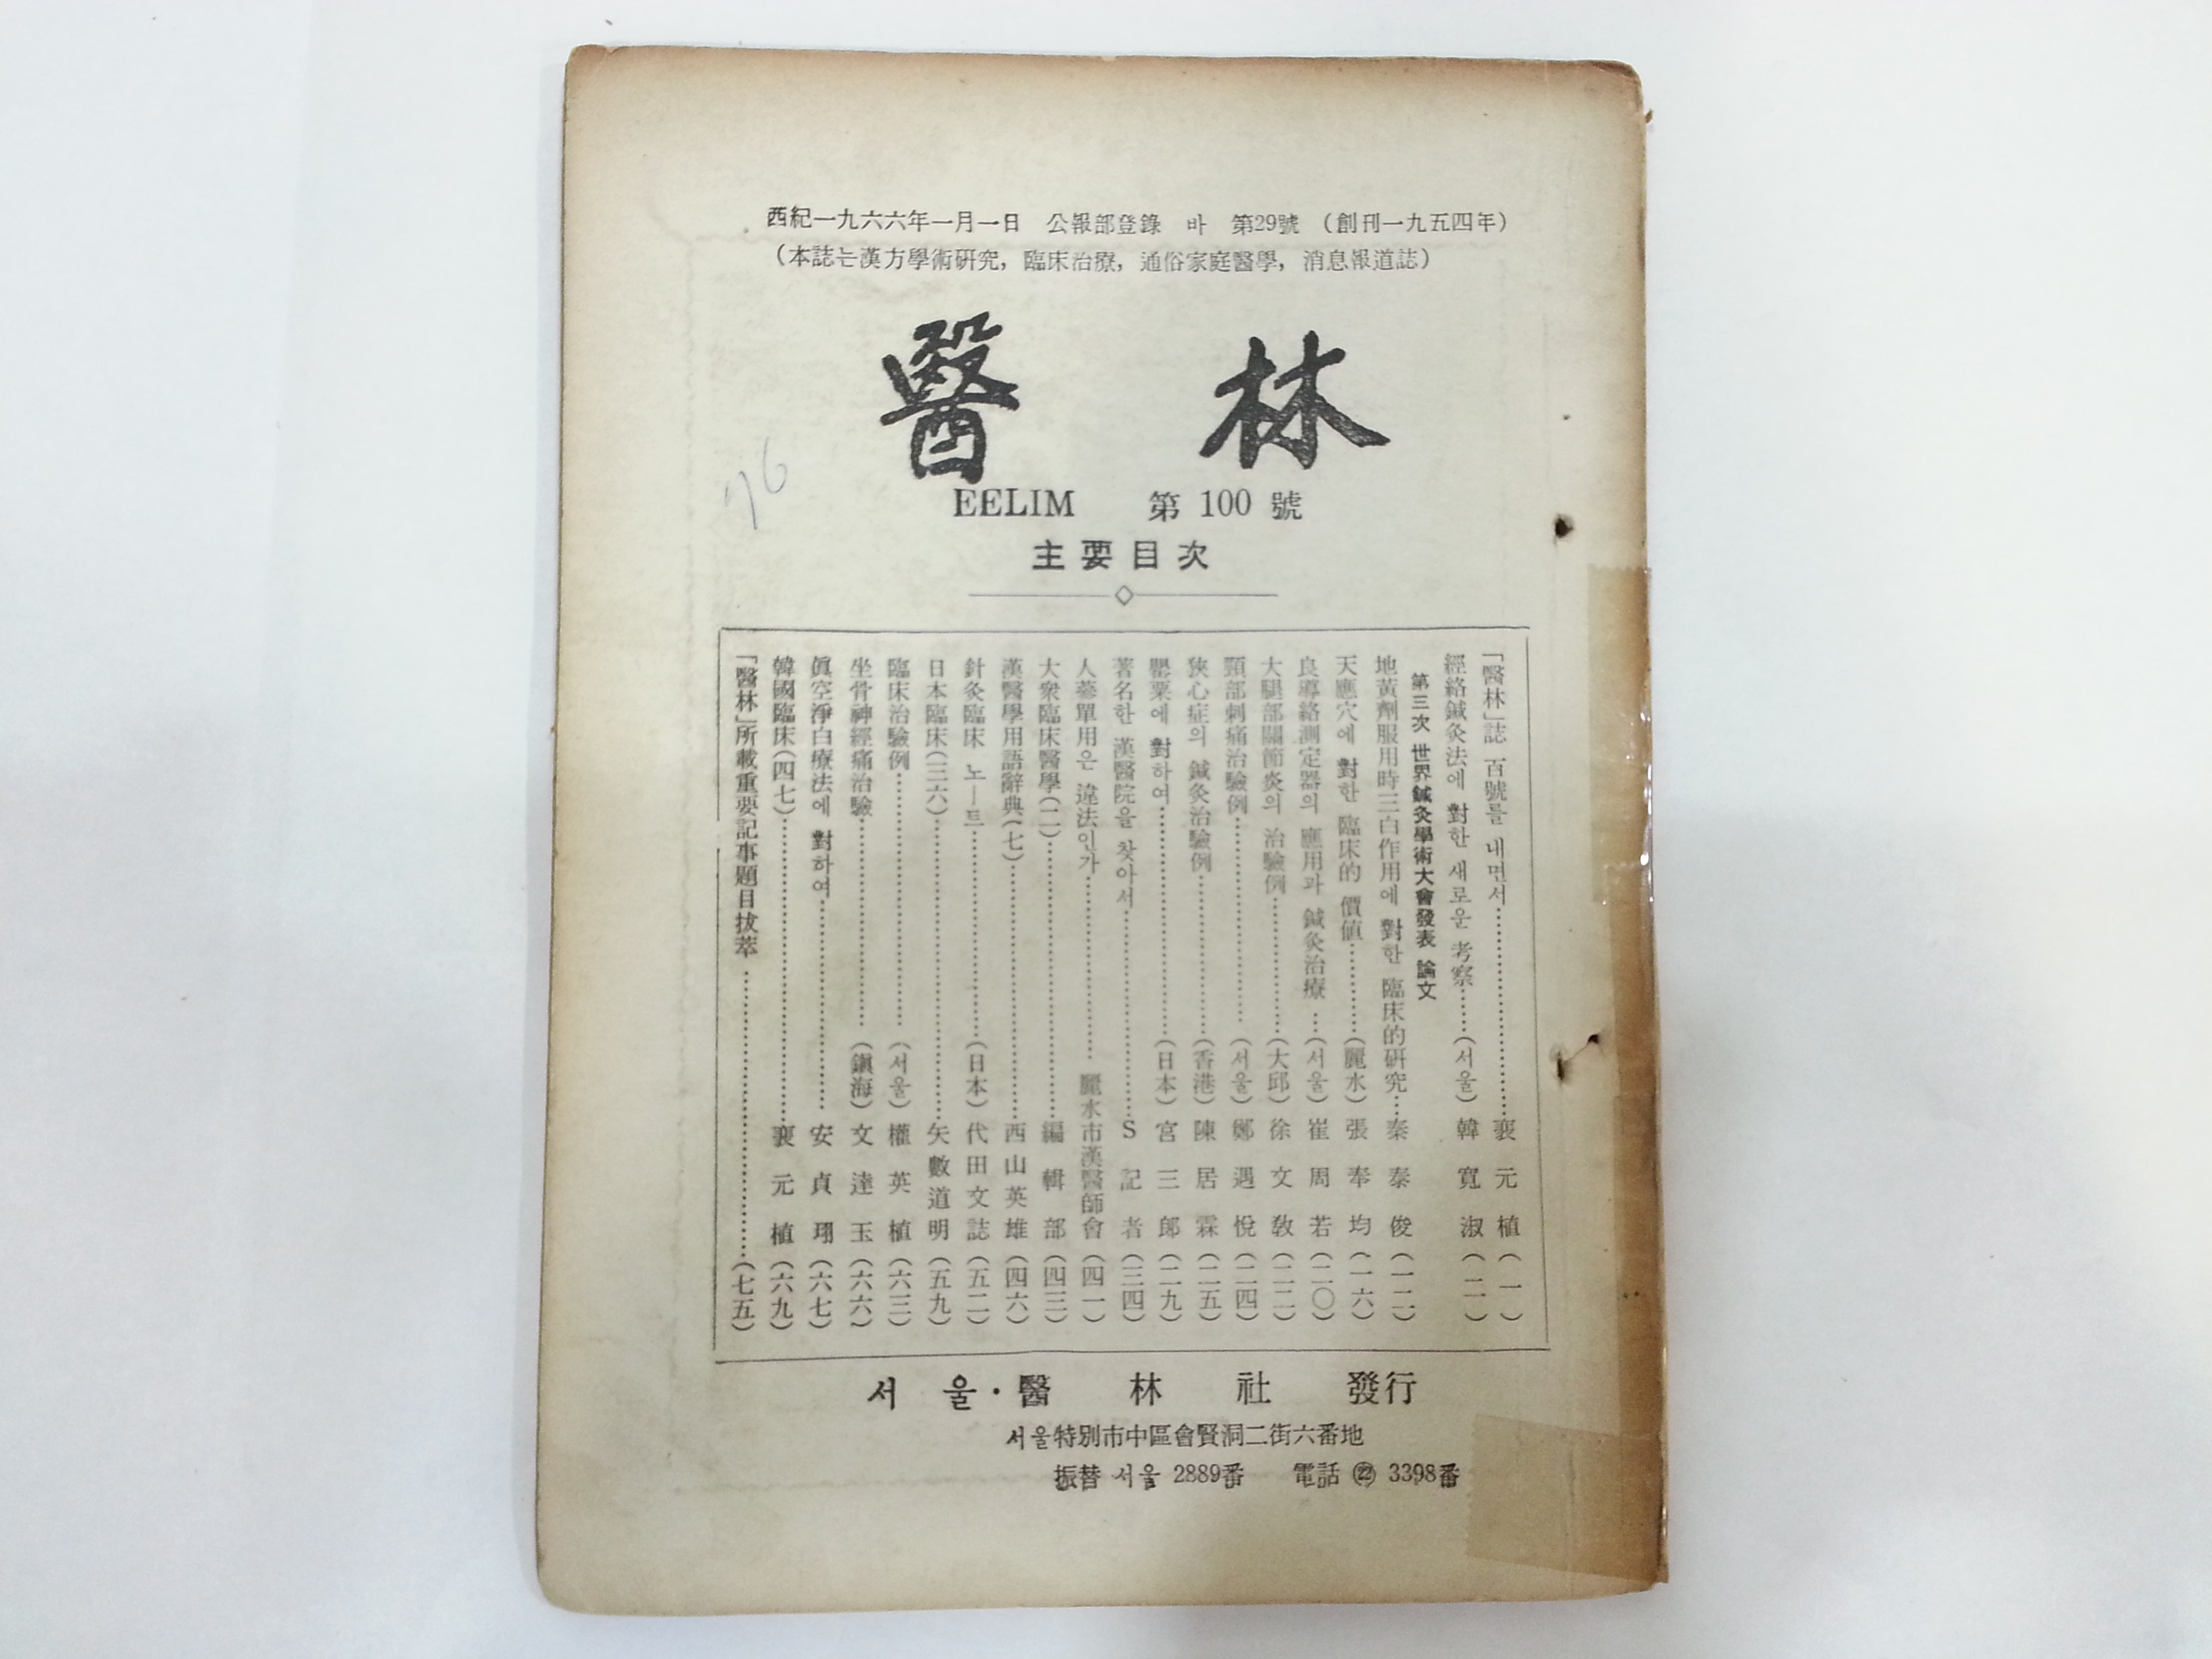 西紀一九六六年一月一日 公報部登錄 바 第29號 (創刊一九五四年)
(本誌는漢方學術硏究, 臨床治療, 通俗家庭醫學, 消息報道誌)
醫林
76
EELIM 第 100 號
主要目次
「醫林」誌 百號를 내면서……………………裵元植(一)
經絡鍼灸法에 對한 새로운 考察……(서울)韓寬淑(二)
第三次 世界鍼灸學術大會發表 論文
地黃劑服用時三白作用에 對한 臨床的硏究…秦泰俊(一二)
天應穴에 對한 臨床的 價値…………(麗水)張奉均(一六)
良導絡測定器의 應用과 鍼灸治療 …(서울)崔周若(二〇)
大腿部關節炎의 治驗例………………(大邱)徐文敎(二二)
頸部刺痛治驗例………………………(서울)鄭遇悅(二四)
狹心症의 鍼灸治驗例…………………(香港)陳居霖(二五)
罌粟에 對하여…………………………(日本)宮三郞(二九)
著名한 漢醫院을 찾아서………………………S記者(三四)
人蔘單用은 違法인가…………………麗水市漢醫師會(四一)
大衆臨床醫學(二)………………………………編輯部(四三)
漢醫學用語辭典(七)……………………………西山英雄(四六)
針灸臨床 노ー트………………………(日本)代田文誌(五二)
日本臨床(三六)…………………………………矢數道明(五九)
臨床治驗例……………………………(서울)權英植(六三)
坐骨神經痛治驗………………………(鎭海)文逹玉(六六)
眞空淨白療法에 對하여………………………安貞珝(六七)
韓國臨床(四七)…………………………………裵元植(六九)
「醫林」所載重要記事題目拔萃 ……………………………(七五)
서울・醫林社 發行
서울特別市中區會賢洞二街六番地
振替 서울 2889番 電話 ㉒ 3398番